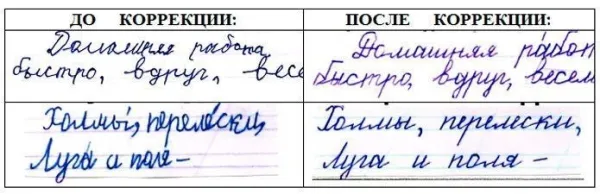 ДО КОРРЕКЦИИ:
ПОСЛЕ КОРРЕКЦИИ:
Домашняя работа
быстро, вдруг, весе
Домашняя работ
быстро, вдруг, весел
Холмы, перелески,
Луга и поля –
Холмы, перелески,
Луга и поля –